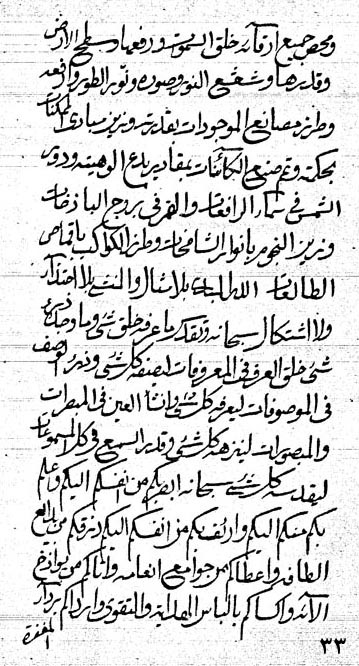 ومحص جميع اركانه خلق السموات ورفعها وسطح الارض
وقدرها وشعشع النور وصوره ونور الطور وارفعه
وطرز مصانع الموجودات بقدرته وزين مبادئ الممكنات
بحكمته وتم صنع الكائنات بمقادير بدع الوهيته ودور
الشمس في سماء الرافعات والقمر في بروج الباذخات
وزين النجوم بانوار الشامخات وطرز الكواكب باقماص
الطالعات بلا مثال والمنشئ بلا اضداد
ولا اشتكال سبحانه وتقدس ما عرفه خلق شئ وما وصفه
شئ خلق العرف في المعروفات ليصفه كل شئ وذكر الوصف
في الموصوفات ليعرفه كل شئ وانشأ العين في المبصرات
والمبصورات لينزهه كل شئ وقدر السمع في كل المسموعات
ليقدسه كل شئ سبحانه ابصركم من انفسكم اليكم وعلم
بكم منكم اليكم وارفعكم من انفسكم اليكم ورزقكم من بدايع
الطافه واعطاكم من جوامع انعامه واتاكم من بوازخ
الائه واكساكم بالباس الهداية والتقوى وارداكم برداء
المغفرة
٣٣